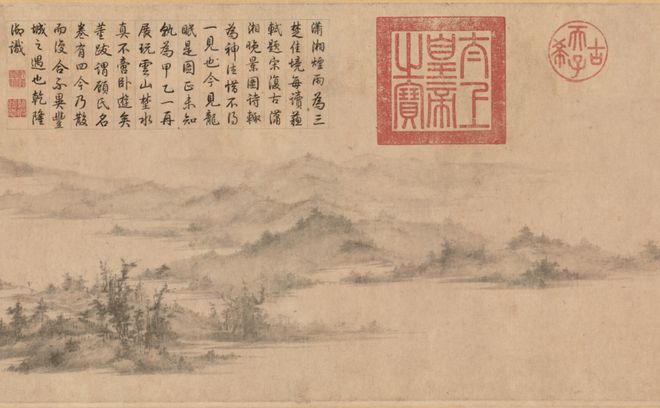 古希天子
太上
皇帝
之寶
瀟湘煙雨為三
楚佳境每讀蘇
軾題宋復古瀟
湘晚景圖詩輒
為神往惜不得
一見也今見龍
眠是圖正未知
孰為甲乙一再
展玩雲山楚水
真不啻臥遊矣
董跋謂顧氏名
卷有四今乃散
而復合不異豐
城之遇也乾隆
御識